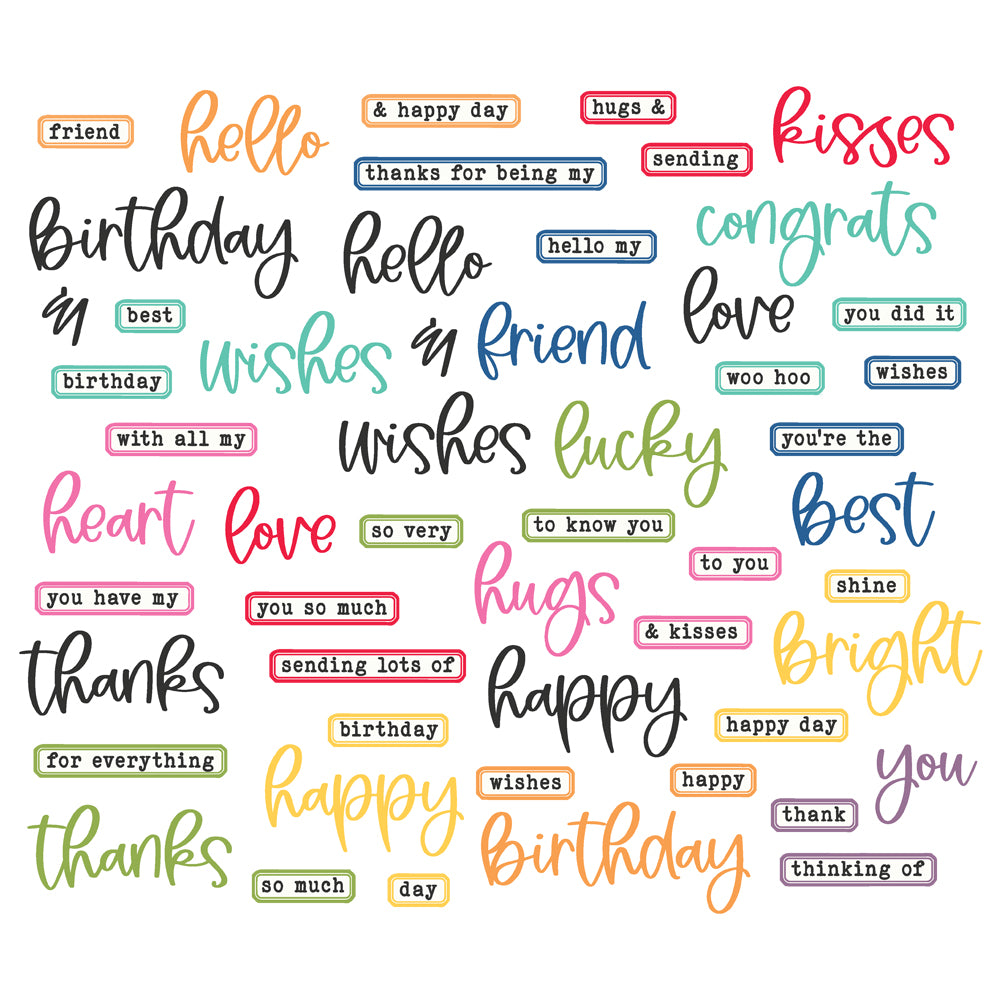 friend
hello
& happy day
hugs &
kisses
thanks for being my
sending
birthday
hello
hello my
congrats
&
best
wishes
&
friend
love
you did it
birthday
woo hoo
wishes
with all my
wishes
lucky
you're the
heart
love
so very
to know you
best
to you
you have my
you so much
hugs
shine
& kisses
bright
thanks
sending lots of
happy
birthday
happy day
for everything
happy
wishes
happy
you
thank
thanks
birthday
so much
day
thinking of